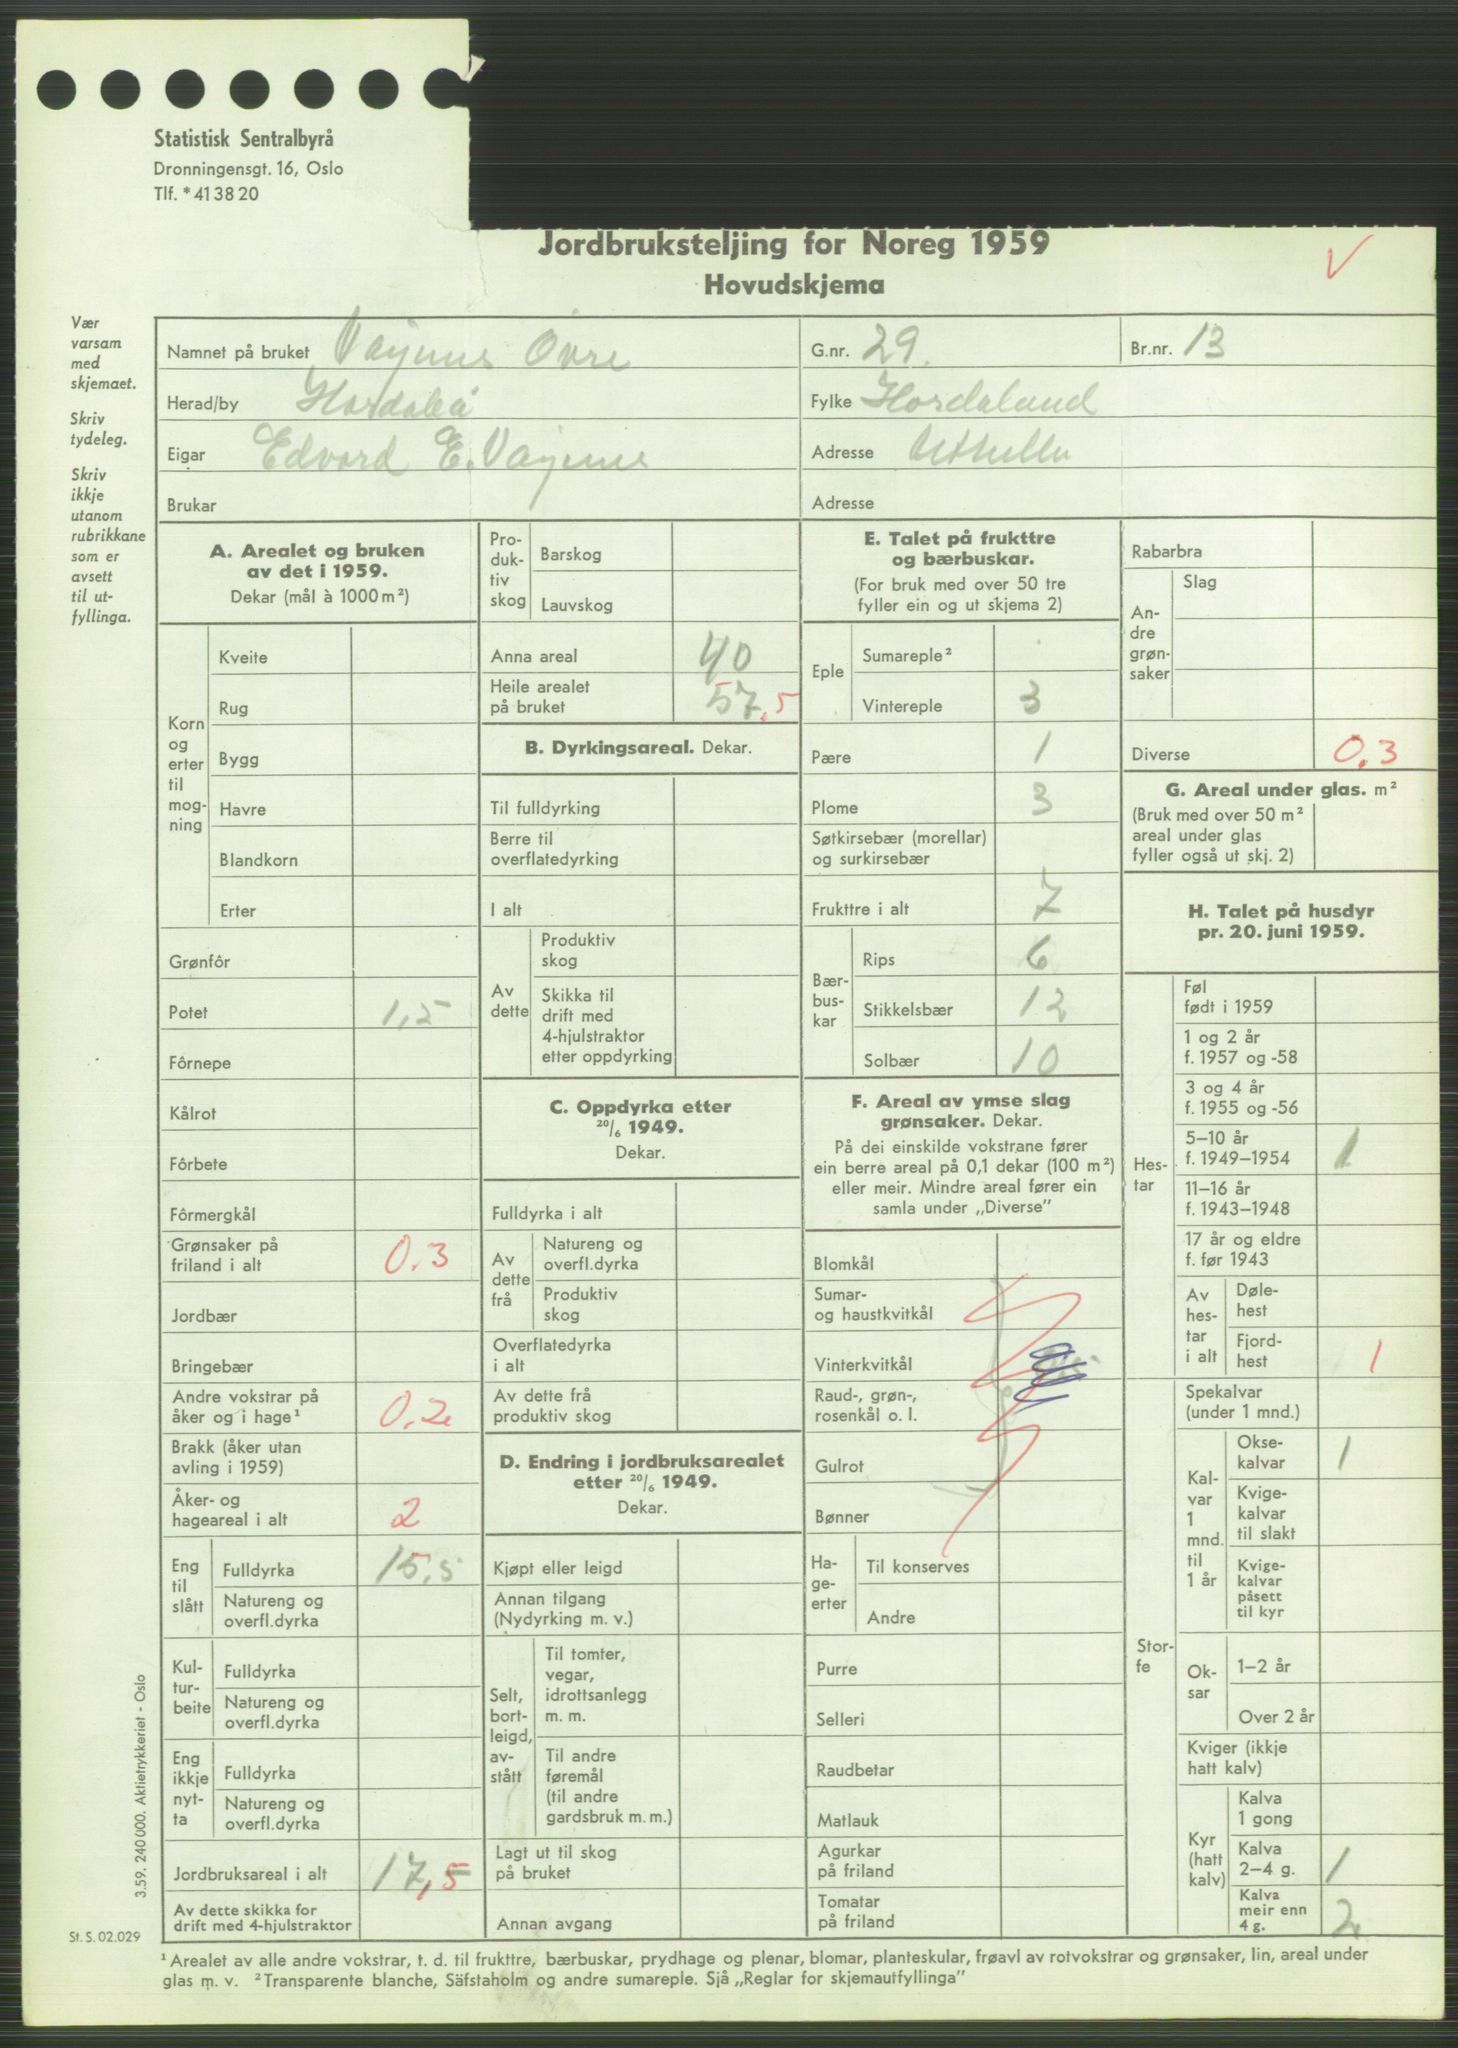 Statistisk Sentralbyrå
Dronningensgt. 16, Oslo
Tlf. * 41 38 20
Jordbruksteljing for Noreg 1959
Hovudskjema
Vær
varsam
med
skjemaet.
Skriv
tydeleg.
Skriv
ikkje
utanom
rubrikkane
som er
avsett
til ut-
fyllinga.
Namnet på bruket Vågenes Øvre G.nr. 29. Br.nr. 13
Herad/by Fylke Hordaland
Eigar Edvard E. Adresse
Brukar Adresse
A. Arealet og bruken
av det i 1959.
Dekar (mål à 1000 m²)
Korn
og
erter
til
mog-
ning
Kveite
Rug
Bygg
Havre
Blandkorn
Erter
Grønfôr
Potet 1,5
Fôrnepe
Kålrot
Fôrbete
Fôrmergkål
Grønsaker på
friland i alt 0.3
Jordbær
Bringebær
Andre vokstrar på
åker og i hage¹ 0.2
Brakk (åker utan
avling i 1959)
Åker- og
hageareal i alt 2
Eng
til
slått
Fulldyrka 15,5
Natureng og
overfl.dyrka
Kul-
tur-
beite
Fulldyrka
Natureng og
overfl.dyrka
Eng
ikkje
nyt-
ta
Fulldyrka
Natureng og
overfl.dyrka
Jordbruksareal i alt 17,5
Av dette skikka for
drift med 4-hjulstraktor
Pro-
duk-
tiv
skog
Barskog
Lauvskog
Anna areal 40
Heile arealet
på bruket 57,5
B. Dyrkingsareal. Dekar.
Til fulldyrking
Berre til
overflatedyrking
I alt
Av
dette
Produktiv
skog
Skikka til
drift med
4-hjulstraktor
etter oppdyrking
C. Oppdyrka etter
20/6 1949.
Dekar.
Fulldyrka i alt
Av
dette
frå
Natureng og
overfl.dyrka
Produktiv
skog
Overflatedyrka
i alt
Av dette frå
produktiv skog
D. Endring i jordbruksarealet
etter 20/6 1949.
Dekar.
Kjøpt eller leigd
Annan tilgang
(Nydyrking m. v.)
Selt,
bort-
leigd,
av-
stått
Til tomter,
vegar,
idrottsanlegg
m. m.
Til andre
føremål
(til andre
gardsbruk m. m.)
Lagt ut til skog
på bruket
Annan avgang
E. Talet på frukttre
og bærbuskar.
(For bruk med over 50 tre
fyller ein og ut skjema 2)
Eple
Sumareple²
Vintereple 3
Pære 1
Plome 3
Søtkirsebær (morellar)
og surkirsebær
Frukttre i alt 7
Bær-
bus-
kar
Rips 6
Stikkelsbær 12
Solbær 10
F. Areal av ymse slag
grønsaker. Dekar.
På dei einskilde vokstrane fører
ein berre areal på 0,1 dekar (100 m²)
eller meir. Mindre areal fører ein
samla under „Diverse”
Blomkål
Sumar-
og haustkvitkål
Vinterkvitkål
Raud-, grøn-,
rosenkål o. l.
Gulrot
Bønner
Ha-
ge-
erter
Til konserves
Andre
Purre
Selleri
Raudbetar
Matlauk
Agurkar
på friland
Tomatar
på friland
Rabarbra
An-
dre
grøn-
saker
Slag
Diverse 0.3
G. Areal under glas. m²
(Bruk med over 50 m²
areal under glas
fyller også ut skj. 2)
H. Talet på husdyr
pr. 20. juni 1959.
Hes-
tar
Føl
født i 1959
1 og 2 år
f. 1957 og -58
3 og 4 år
f. 1955 og -56
5–10 år
f. 1949–1954 1
11–16 år
f. 1943–1948
17 år og eldre
f. før 1943
Av
hes-
tar
i alt
Døle-
hest
Fjord-
hest 1
Stor-
fe
Spekalvar
(under 1 mnd.)
Kal-
var
1
mnd.
til
1 år
Okse-
kalvar 1
Kvige-
kalvar
til slakt
Kvige-
kalvar
påsett
til kyr
Ok-
sar
1–2 år
Over 2 år
Kviger (ikkje
hatt kalv)
Kyr
(hatt
kalv)
Kalva
1 gong
Kalva
2–4 g. 1
Kalva
meir enn
4 g. 2
3.59. 240 000. Aktietrykkeriet - Oslo
St. S. 02.029
¹ Arealet av alle andre vokstrar, t. d. til frukttre, bærbuskar, prydhage og plenar, blomar, planteskular, frøavl av rotvokstrar og grønsaker, lin, areal under
glas m. v. ² Transparente blanche, Säfstaholm og andre sumareple. Sjå „Reglar for skjemautfyllinga”